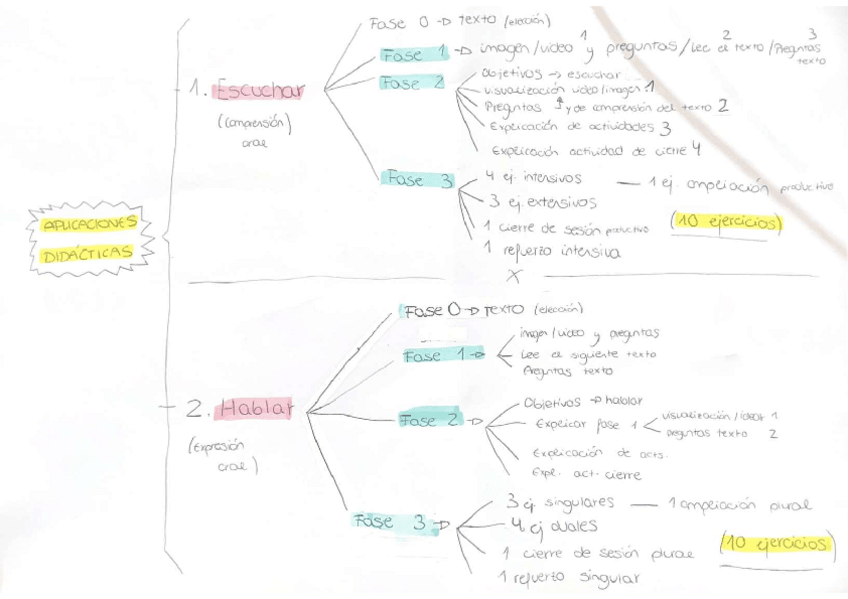 APLICACIONES
DIDÁCTICAS
1. Escuchar
(comprensión)
oral
Fase 0 → texto (elección)
Fase 1 → imagen/video 1 y preguntas/Lee el texto 2/Preguntas texto 3
Fase 2
Objetivos → escuchar
visualización video/imagen 1
Preguntas y de comprensión del texto 2
Explicación de actividades 3
Explicación actividad de cierre 4
Fase 3
4 ej. intensivos — 1 ej. ampliación productivo
3 ej. extensivos
1 cierre de sesión productivo (10 ejercicios)
1 refuerzo intensiva
X
2. Hablar
(Expresión
oral)
Fase 0 → TEXTO (elección)
Fase 1 →
imagen/video y preguntas
Lee el siguiente texto
Preguntas texto
Fase 2 →
Objetivos → hablar
Explicar fase 1
visualización/ 1
preguntas texto 2
Explicación de acts.
Expl. act. cierre
Fase 3 →
3 ej singulares — 1 ampliación plural
4 ej duales
1 cierre de sesión plural (10 ejercicios)
1 refuerzo singular